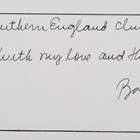 outhern England clu
with my love and th
Ba